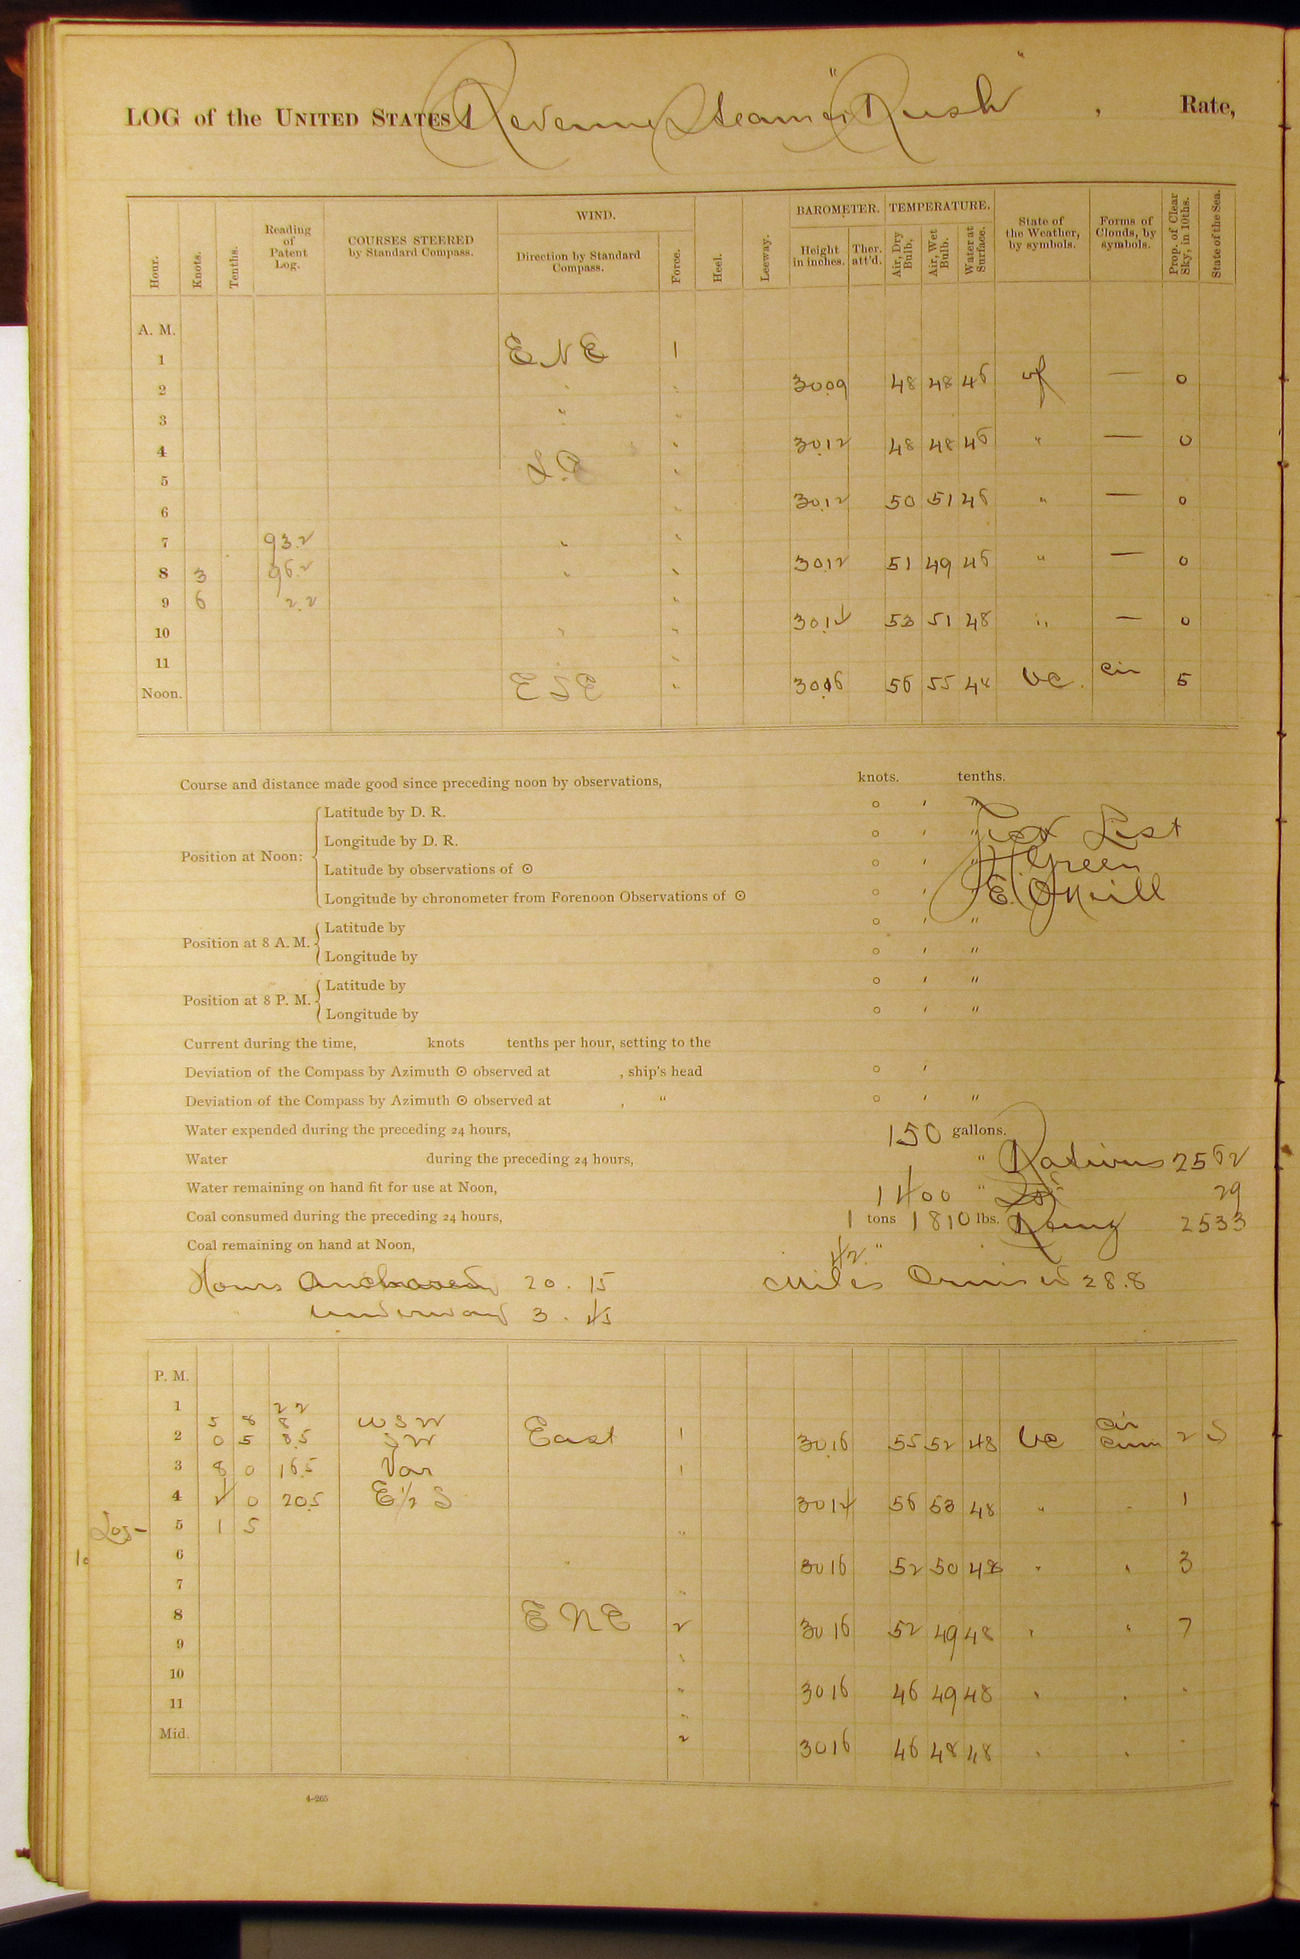 LOG of the UNITED STATES Revenue Steamer "Rush" , Rate,
Hour. Knots. Tenths. Reading of Patent Log. COURSES STEERED by Standard Compass. WIND. Direction by Standard Compass. Force. Heel. Leeway. BAROMETER. Height in inches. Ther. att'd. TEMPERATURE. Air, Dry Bulb. Air, Wet Bulb. Water at Surface. State of the Weather, by symbols. Forms of Clouds, by symbols. Prop. of Clear Sky, in 10ths. State of the Sea.
A. M.
1 ENE 1
2 " " 30.09 48 48 46 of — 0
3 " "
4 " 30.12 48 48 46 " — 0
5 S.E "
6 " 30.12 50 51 46 " — 0
7 93.2 " "
8 3 96.2 " " 30.12 51 49 46 " — 0
9 6 2.2 "
10 " " 30.14 53 51 48 " — 0
11 " "
Noon. ESE " 30.16 56 55 48 bc. Cir 5
Course and distance made good since preceding noon by observations, knots. tenths.
Position at Noon:
Latitude by D. R. ° ′ ″
Longitude by D. R. ° ′ ″ Sick List
Latitude by observations of ☉ ° ′ ″ Green
Longitude by chronometer from Forenoon Observations of ☉ ° ′ ″ E. O'Neill
Position at 8 A. M.
Latitude by ° ′ ″
Longitude by ° ′ ″
Position at 8 P. M.
Latitude by ° ′ ″
Longitude by ° ′ ″
Current during the time, knots tenths per hour, setting to the
Deviation of the Compass by Azimuth ☉ observed at , ship's head ° ′
Deviation of the Compass by Azimuth ☉ observed at , " ° ′ ″
Water expended during the preceding 24 hours, 150 gallons.
Water during the preceding 24 hours, " Rations 2562
Water remaining on hand fit for use at Noon, 1400 " 29
Coal consumed during the preceding 24 hours, 1 tons 1810 lbs. Remg 2533
Coal remaining on hand at Noon, 42 "
Hours Anchored 20.15 Miles Cruised 28.8
" Underway 3.45
P. M.
1 2 2
5 8 8 WSW Cir
2 0 5 8.5 SW East 1 30.16 55 52 48 bc Cum 2 S
3 8 0 16.5 Var 1
4 4 0 20.5 E½S 30.14 56 53 48 " " 1
Log— 5 1 5 "
6 " 30.16 52 50 48 " " 3
7 "
8 ENE 2 30.16 52 49 48 " " 7
9 "
10 " 30.16 46 49 48 " " "
11 "
Mid. 2 30.16 46 48 48 " " "
4-265